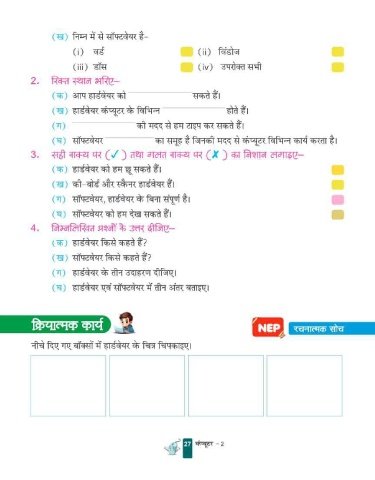 (ख) निम्न में से सॉफ्टवेयर है-
(i) वर्ड (ii) विंडोज
(iii) डॉस (iv) उपरोक्त सभी
2. रिक्त स्थान भरिए–
(क) आप हार्डवेयर को ____________ सकते हैं।
(ख) हार्डवेयर कंप्यूटर के विभिन्न ____________ होते हैं।
(ग) ____________ की मदद से हम टाइप कर सकते हैं।
(घ) सॉफ्टवेयर ____________ का समूह हैं जिनकी मदद से कंप्यूटर विभिन्न कार्य करता है।
3. सही वाक्य पर (✓) तथा गलत वाक्य पर (✗) का निशान लगाइए–
(क) हार्डवेयर को हम छू सकते हैं।
(ख) की-बोर्ड और स्कैनर हार्डवेयर हैं।
(ग) सॉफ्टवेयर, हार्डवेयर के बिना संपूर्ण है।
(घ) सॉफ्टवेयर को हम देख सकते हैं।
4. निम्नलिखित प्रश्नों के उत्तर दीजिए–
(क) हार्डवेयर किसे कहते हैं?
(ख) सॉफ्टवेयर किसे कहते हैं?
(ग) हार्डवेयर के तीन उदाहरण दीजिए।
(घ) हार्डवेयर एवं सॉफ्टवेयर में तीन अंतर बताइए।
क्रियात्मक कार्य NEP रचनात्मक सोच
नीचे दिए गए बॉक्सों में हार्डवेयर के चित्र चिपकाइए।
27 कंप्यूटर – 2